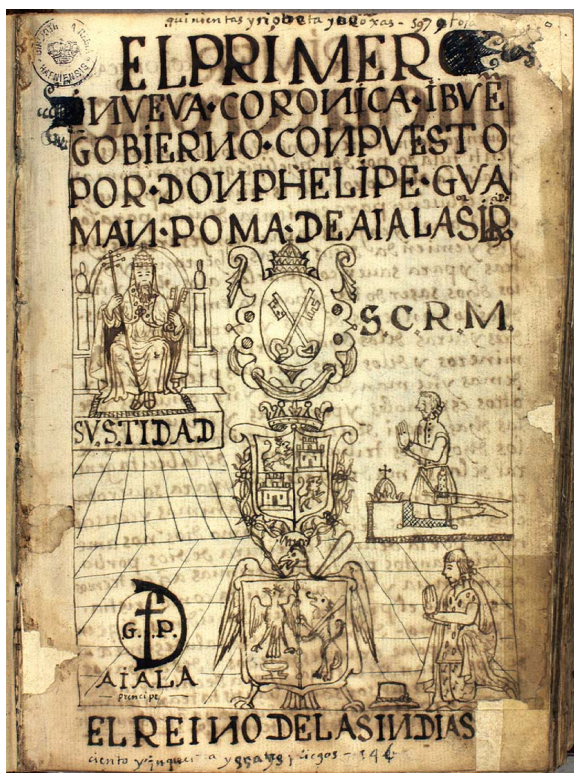 quinientas y nobenta y ... foxas - 597 foja
EL PRIMER
NVEVA·CORONICA·IBVE
GOBIERNO·CONPVESTO
POR·DON PHELIPE·GVA
MAN·POMA·DE AIALA SIR
S.C.R.M.
SV.S.TIDAD
G..P.
AIALA
principe
EL REINO DE LAS INDIAS
ciento y pliegos - 146